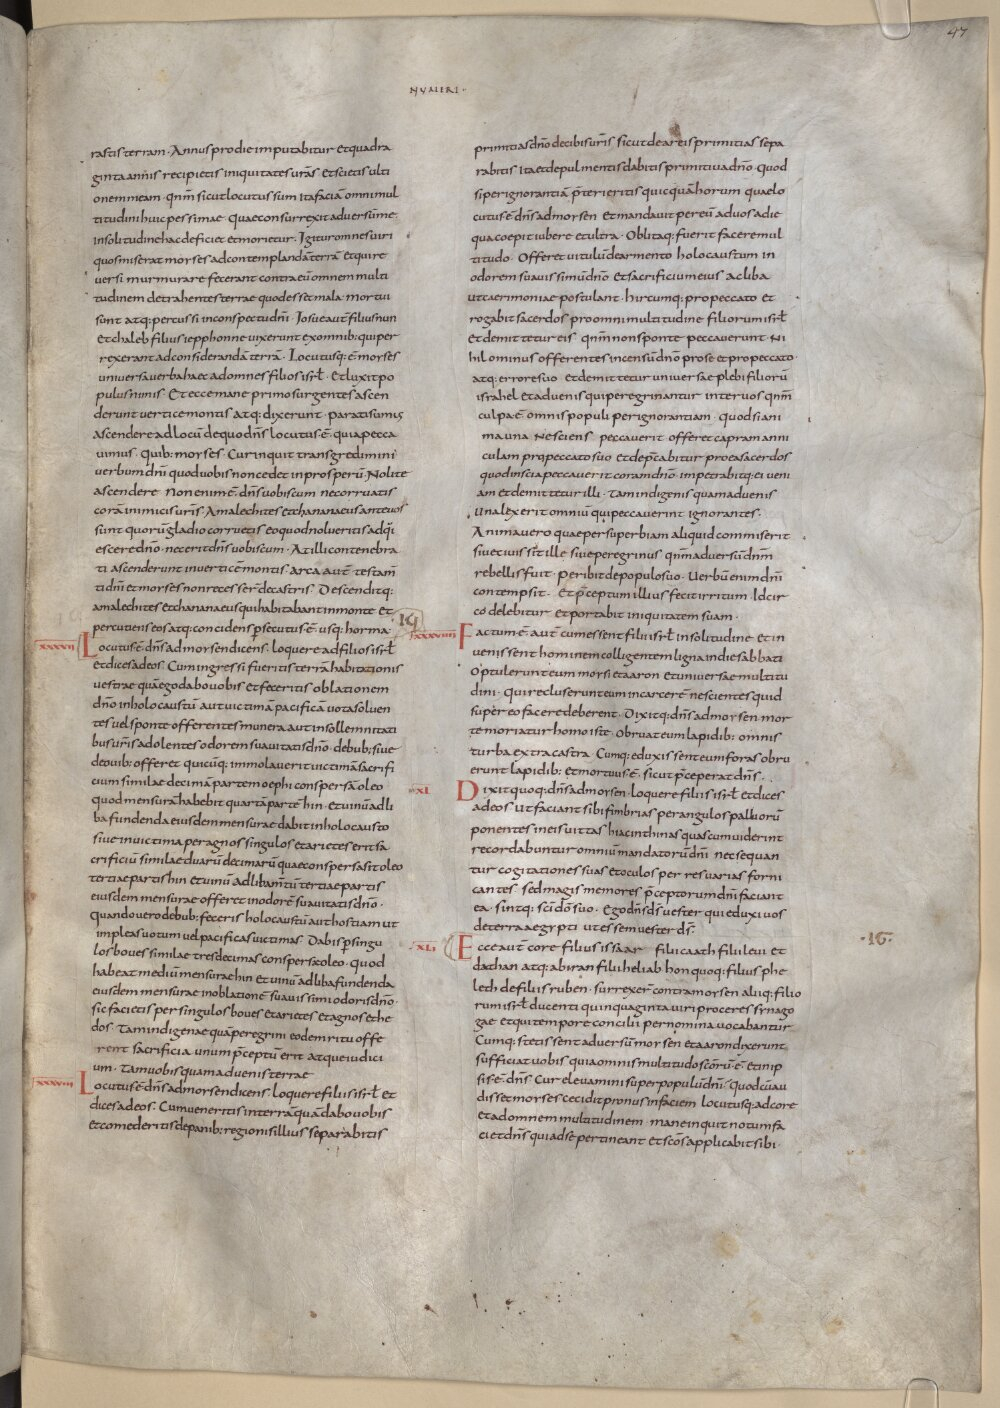 47
NUMERI
rastis terram. Annus pro die imputabitur et quadra
ginta annis recipietis iniquitates urās et scietis ulti
onem meam. qnm̄ sicut locutus sum ita faciā omni mul
titudini huic pessimae quae consurrexit aduersū me.
in solitudine hac deficiet et morietur. Igitur omnes uiri
quos miserat moyses ad contemplandā terrā et qui re
uersi murmurare fecerant contra eū omnem multi
tudinem detrahentes terrae quod esset mala mortui
sunt atq; percussi in conspectu dn̄i. Iosue aut̄ filius nun
et chaleb filius iepphonne uixerunt ex omnib; qui per
rexerant ad considerandā terrā. Locutusq; ē moyses
uniuersa uerba haec ad omnes filios isrl̄. Et luxit po
pulus nimis. Et ecce mane primo surgentes ascen
derunt uerticem montis atq; dixerunt. parati sumus
ascendere ad locū de quo dn̄s locutus ē. quia pecca
uimus. Quib; moyses. Cur inquit transgredimini
uerbum dn̄i quod uobis non cedet in prosperū. Nolite
ascendere. Non enim ē dn̄s uobiscum. ne corruatis
corā inimicis uris̄. Amalechites et chananaeus ante uos
sunt quorū gladio corruetis eo quod nolueritis adq̇i
escere dn̄o. nec erit dn̄s uobiscum. At illi contenebra
ti ascenderunt in uerticē montis. arca aut̄ testam̄
ti dn̄i et moyses non recesser̄ de castris. Descenditq;
amalechites et chananaeus qui habitabant in monte et
percutiens eos atq; concidens p̄secutus ē usq; horma.
XXXVII
Locutus ē dn̄s ad moysen dicens. loquere ad filios isrl̄
et dices ad eos. Cum ingressi fueritis terrā habitationis
uestrae quā ego dabo uobis et feceritis oblationem
dn̄o in holocaustū aut uictimā pacificā uota soluen
tes uel sponte offerentes munera aut in sollemnitati
bus uris̄ adolentes odorem suauitatis dn̄o. de bub; siue
de ouib; offeret quicūq; immolauerit uictimā sacrifi
cium similae decimā partem oephi conspersā oleo
quod mensurā habebit quartā partē hin. et uinū ad li
ba fundenda eiusdem mensurae dabit in holocausto
siue in uictima per agnos singulos et arietes erit sa
crificiū similae duarū decimarū quae conspersa sit oleo
tertiae partis hin et uinū ad libamtū tertiae partis
eiusdem mensurae offeret in odorē suauitatis dn̄o.
Quando uero de bub; feceris holocaustū aut hostiam ut
impleas uotum uel pacificas uictimas. Dabis p̄ singu
los boues similae tres decimas conspersae oleo. quod
habeat mediū mensurae hin et uinū ad liba fundenda
eiusdem mensurae in oblationē suauissimi odoris dn̄o.
sic facietis per singulos boues et arietes et agnos et he
dos. Tam indigenae quā peregrini eodem ritu offe
rent sacrificia unum p̄ceptū erit atque iudici
um. Tam uobis quam aduenis terrae
XXXVIII
Locutus ē dn̄s ad moysen dicens. Loquere filiis isrl̄ et
dices ad eos. Cum ueneritis in terrā quā dabo uobis
et comederitis de panib; regionis illius separabitis
primitias dn̄o de cibis uris̄. sicut de areis primitias sepa
rabitis. Ita et de pulmentis dabitis primitiua dn̄o. Quod
si per ignorantiā p̄terieritis quicquā horum quae lo
cutus ē dn̄s ad moysen et mandauit per eū ad uos a die
qua coepit iubere et ultra. Oblitaq; fuerit facere mul
titudo. Offeret uitulū de armento holocaustum in
odorem suauissimū dn̄o et sacrificium eius ac liba
ut caerimoniae postulant. hircumq; pro peccato et
rogabit sacerdos pro omni multitudine filiorum isrl̄
et demittetur eis qnm̄ non sponte peccauerunt. Ni
hilominus offerentes incensū dn̄o pro se et pro peccato
atq; errore suo. et demittetur uniuersae plebi filiorū
israhel et aduenis qui peregrinantur inter uos qnm̄
culpa ē omnis populi per ignorantiam. quod si ani
ma una nesciens peccauerit offeret capram anni
culam pro peccato suo et dep̄cabitur pro ea sacerdos
quod inscia peccauerit coram dn̄o. impetrabitq; ei ueni
am et demittetur illi. Tam indigenis quam aduenis
una lex erit omniū qui peccauerint ignorantes.
Anima uero quae per superbiam aliquid commiserit
siue ciuis sit ille siue peregrinus qnm̄ aduersū dnm̄
rebellis fuit. peribit de populo suo. Uerbū enim dn̄i
contempsit. et p̄ceptum illius fecit irritum. Idcir
co delebitur et portabit iniquitatem suam.
XXXVIIII
Factum ē aut̄ cum essent filii isrl̄ in solitudine et in
uenissent hominem colligentem ligna in die sabbati
Optulerunt eum moysi et aaron et uniuersae multitu
dini. Qui recluserunt eum in carcerē nescientes quid
super eo facere deberent. Dixitq; dn̄s ad moysen. mor
te moriatur homo iste. Obruat eum lapidib; omnis
turba extra castra. Cumq; eduxissent eum foras obru
erunt lapidib; et mortuus ē sicut p̄ceperat dn̄s.
XL
Dixit quoq; dn̄s ad moysen. loquere filiis isrl̄ et dices
ad eos ut faciant sibi fimbrias per angulos palliorū
ponentes in eis uittas hiacinthinas quas cum uiderint
recordabuntur omniū mandatorū dn̄i nec sequan
tur cogitationes suas et oculos per res uarias forni
cantes. sed magis memores p̄ceptorum dn̄i faciant
ea. sintq; sc̄i dō suo. Ego dn̄s ds̄ uester qui eduxi uos
de terra aegypti ut essem uester ds̄.
XLI
Ecce aut̄ core filius issaar filii caath filii leui et
dathan atq; abiran filii heliab hon quoq; filius phe
leth de filiis ruben. surrexer̄ contra moysen aliiq; filio
rum isrl̄ ducenti quinquaginta uiri proceres synago
gae et qui tempore concilii per nomina uocabantur.
Cumq; stetissent aduersū moysen et aaron dixerunt.
sufficiat uobis quia omnis multitudo sc̄orū ē et in ip
sis ē dn̄s. Cur eleuamini super populū dn̄i. Quod cū au
disset moyses cecidit pronus in faciem locutusq; ad core
et ad omnem multitudinem. mane inquit notum fa
ciet dn̄s qui ad se pertineant et sc̄os applicabit sibi.